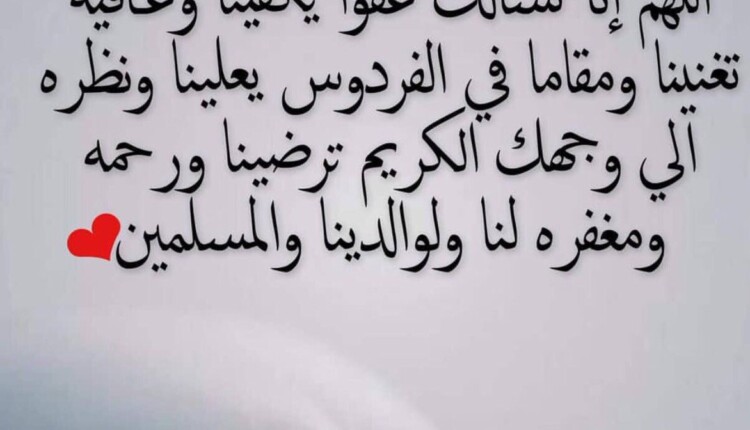 اللهم إنا نسألك عفوا يكفينا وعافية
تغنينا ومقاما في الفردوس يعلينا ونظره
الي وجهك الكريم ترضينا ورحمه
ومغفره لنا ولوالدينا والمسلمين